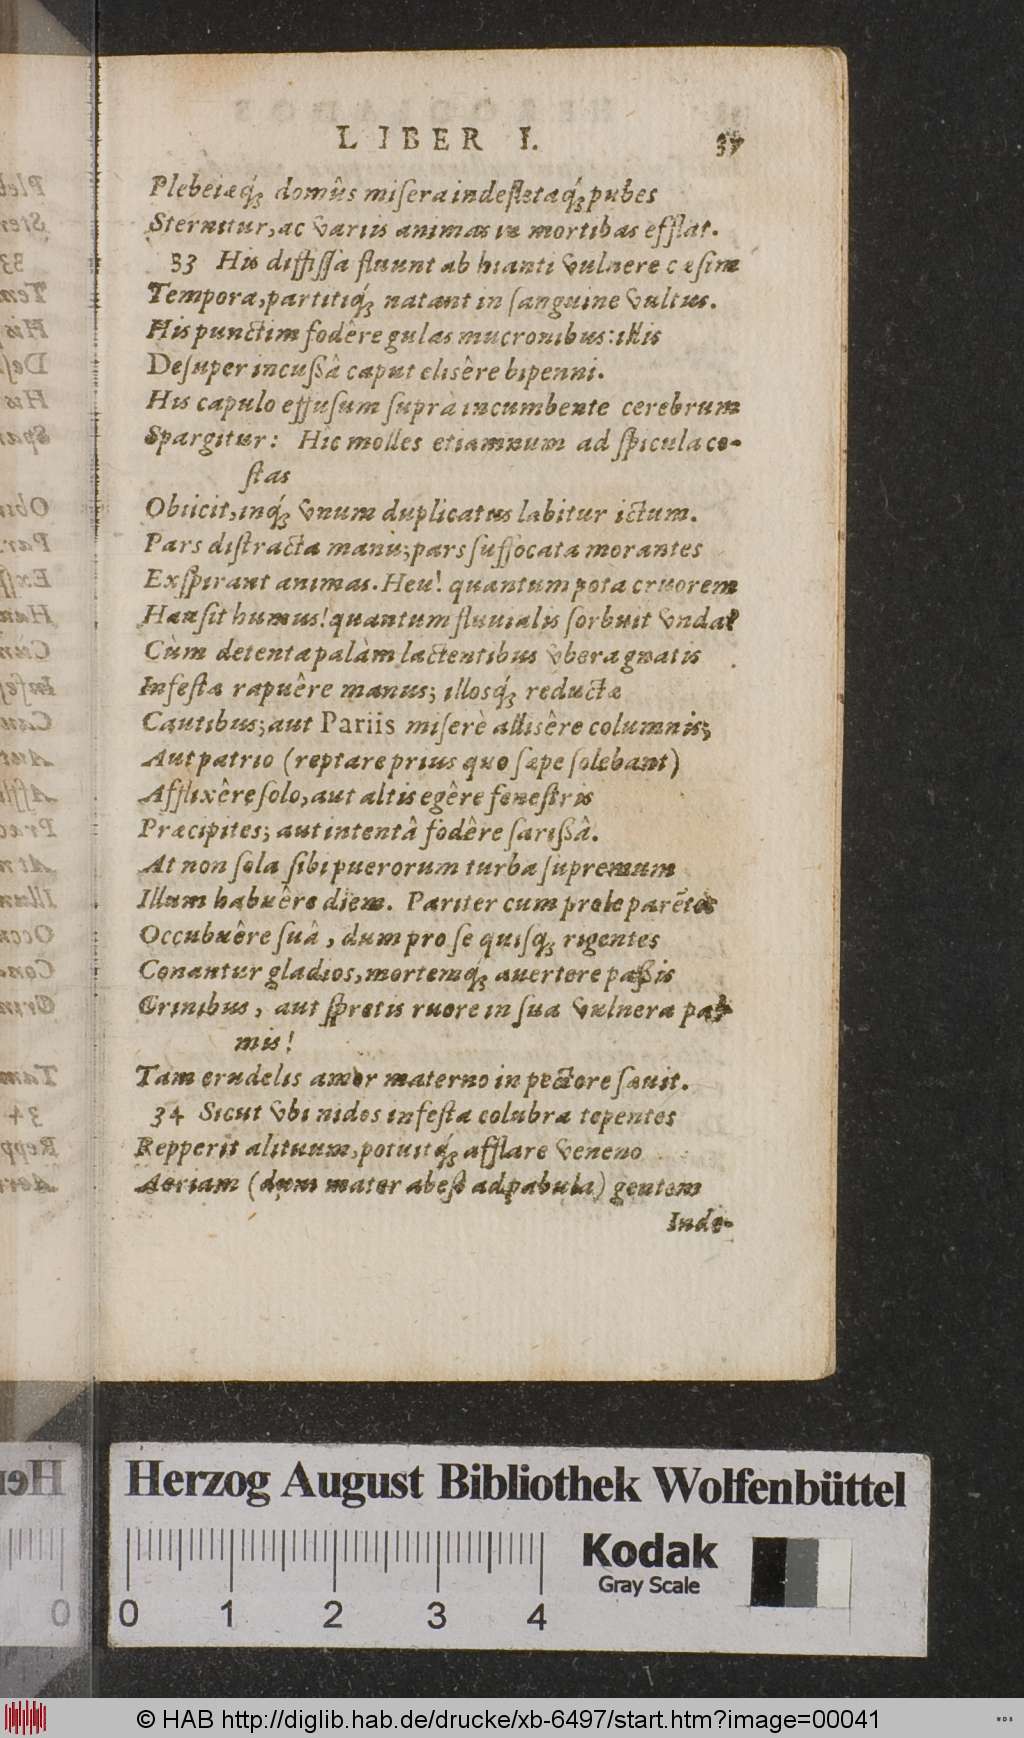 LIBER I. 37
Plebeiæq́ꝫ domûs misera indefletaq́ꝫ pubes
Sternitur, ac variis animas in mortibas efflat.
33 His diffissa fluunt ab hianti vulnere cæsim
Tempora, partitiq́ꝫ natant in sanguine vultus.
His punctim fodêre gulas mucronibus: illis
Desuper incussâ caput elisêre bipenni.
His capulo effusum suprà incumbente cerebrum
Spargitur: Hic molles etiamnum ad spicula co-
stas
Obiicit, inq́ꝫ vnum duplicatus labitur ictum.
Pars distracta manu; pars suffocata morantes
Exspirant animas. Heu! quantum pota cruorem
Hausit humus! quantum fluuialis sorbuit vnda!
Cùm detenta palàm lactentibus vbera gnatis
Infestæ rapuêre manus; illosq́ꝫ reductæ
Cautibus; aut Pariis miserè allisêre columnis;
Aut patrio (reptare prius quo sæpe solebant)
Afflixêre solo, aut altis egêre fenestris
Præcipites; aut intentâ fodêre sarissâ.
At non sola sibi puerorum turba supremum
Illum habuêre diem. Pariter cum prole parẽtes
Occubuêre suâ, dum pro se quisqꝫ rigentes
Conantur gladios, mortemqꝫ auertere passis
Crinibus, aut spretis ruere in sua vulnera pal-
mis!
Tam crudelis amor materno in pectore sæuit.
34 Sicut vbi nidos infesta colubra tepentes
Repperit alituum, potuitq́ꝫ afflare veneno
Aeriam (dum mater abest ad pabula) gentem
Inde-
Herzog August Bibliothek Wolfenbüttel
Kodak
Gray Scale
0 0 1 2 3 4
© HAB http://diglib.hab.de/drucke/xb-6497/start.htm?image=00041